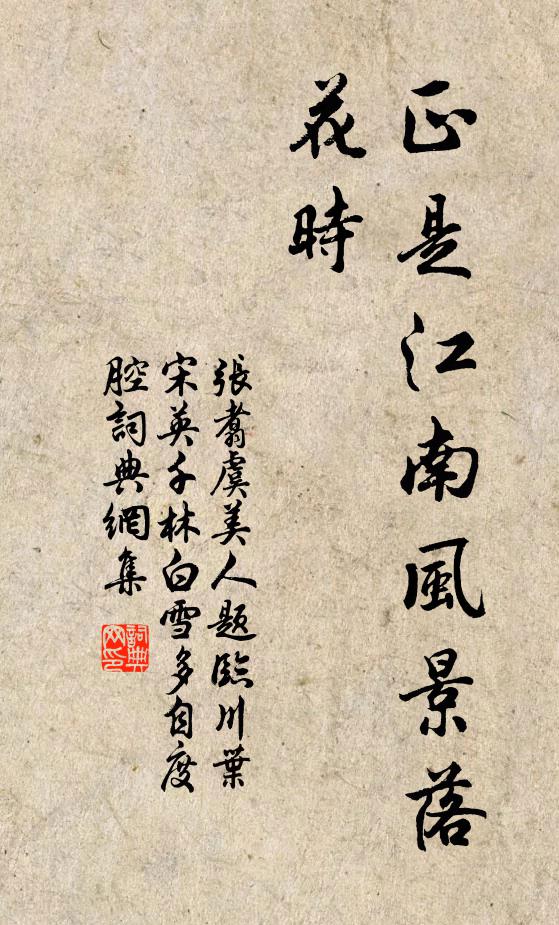 正是江南風景落
花時
張翥虞美人題臨川葉
宋英千林白雪多自度
腔詞典網集
詞典网印